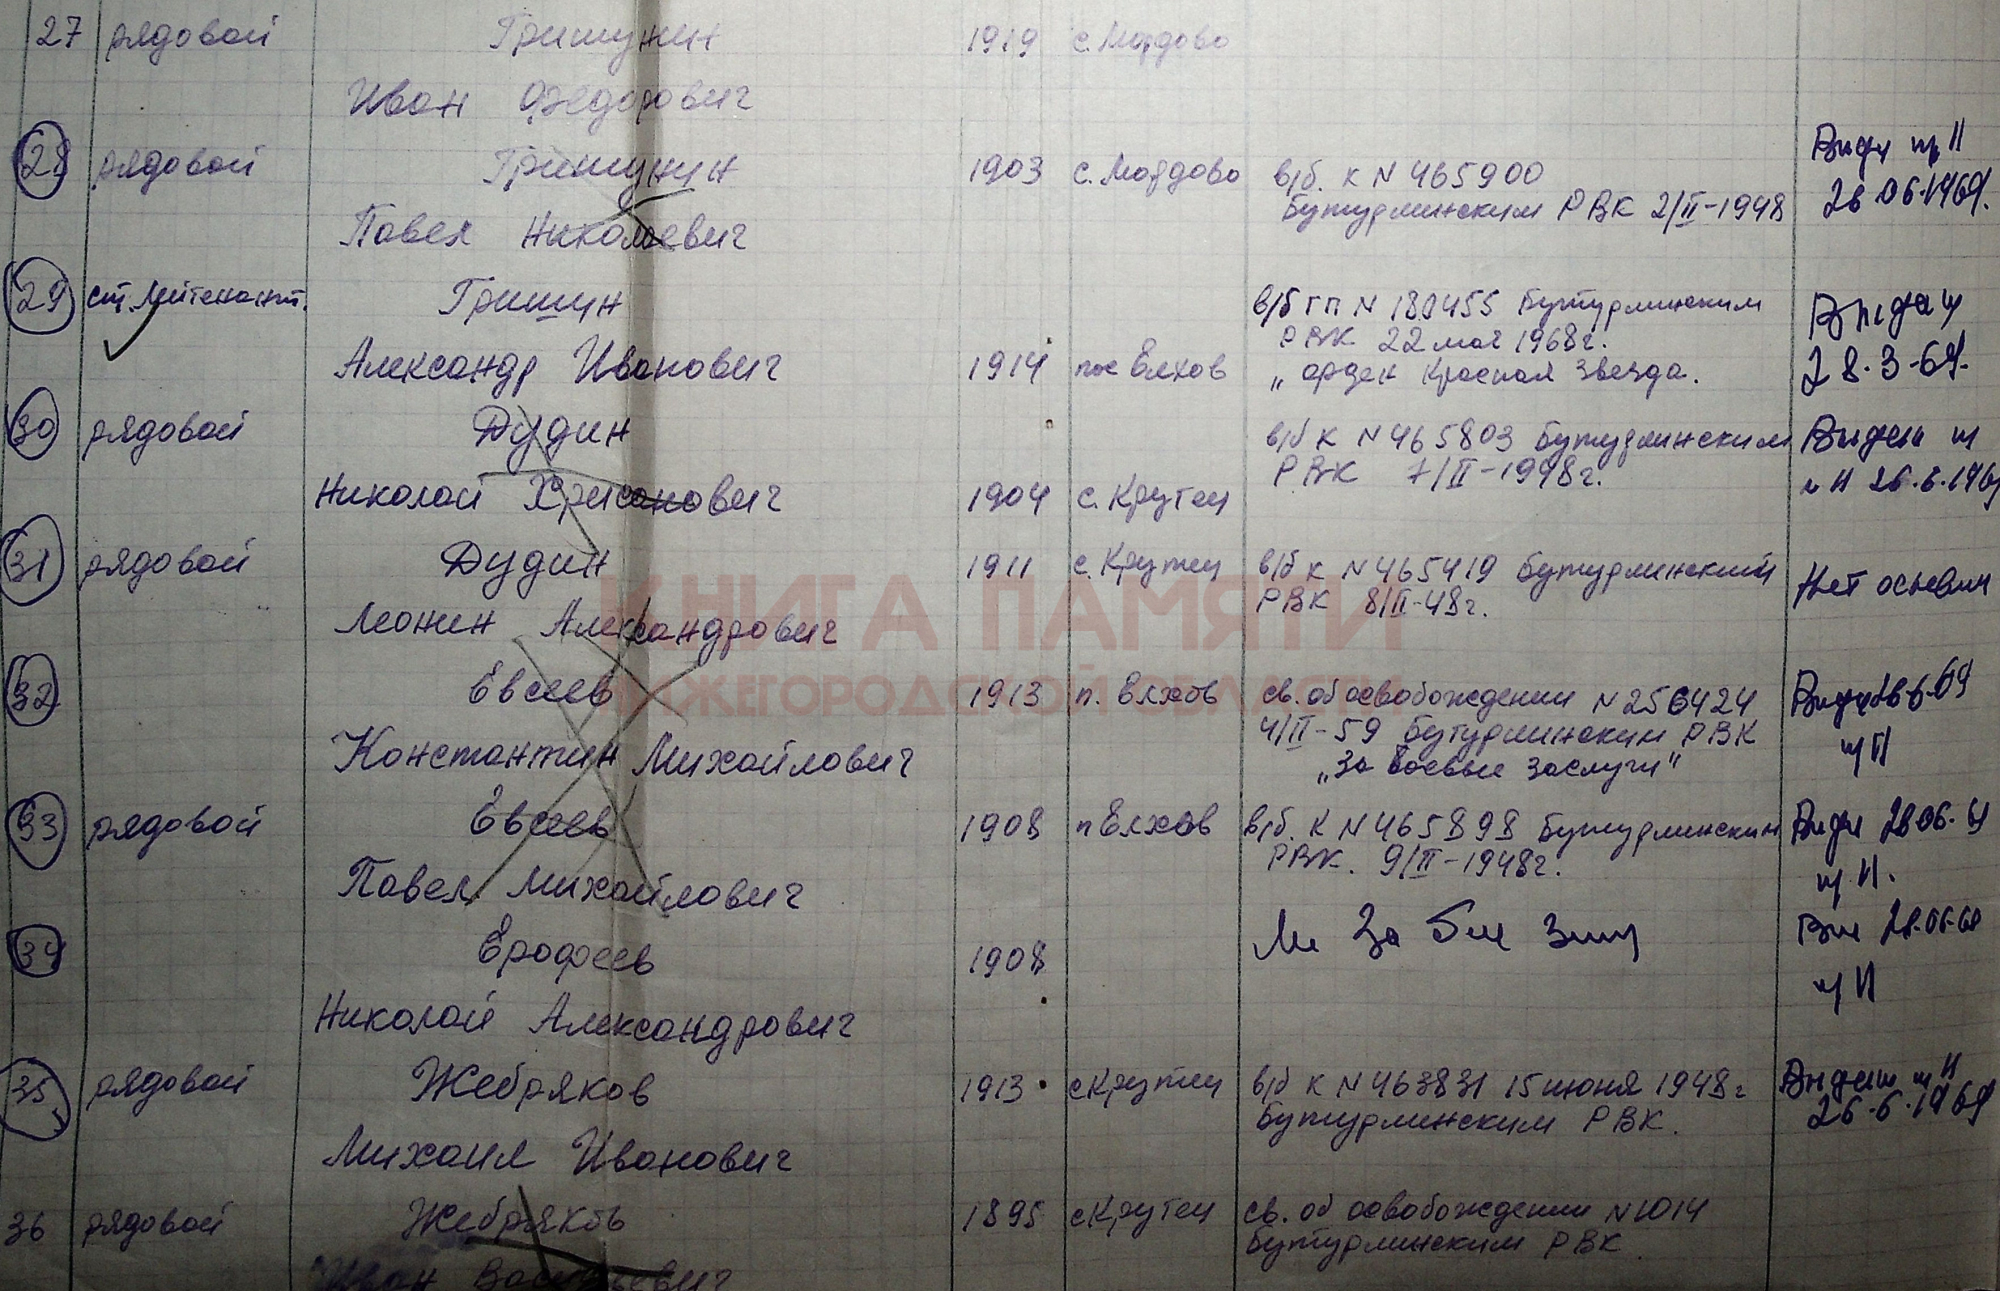 27 рядовой Гришунин 1919 с. Мордово
Иван Федорович
28 рядовой Гришунин 1903 с. Мордово в/б. к N 465900
Бутурлинским РВК 2/II-1948
26.06.1969.
Павел Николаевич
29 ст. лейтенант. Гришин в/б гп N 180455 Бутурлинским
РВК 22 мая 1968г.
Александр Иванович 1914 пос Елхов „ орден Красная Звезда. 28.3-69.
30 рядовой Дудин в/б к N 465803 Бутурлинским
РВК 7/II-1948г.
Николай Хрисанович 1904 с. Крутец 26.6.196
31 рядовой Дудин 1911 с. Крутец в/б к N 465419 Бутурлинский Нет
РВК 8/II-48г.
КНИГА ПАМЯТИ
Леонин Александрович
32 Евсеев 1913 п. Елхов св. об освобождении N 256424
НИЖЕГОРОДСКОЙ ОБЛАСТИ
4/II-59 Бутурлинским РВК
Константин Михайлович „За боевые заслуги"
33 рядовой Евсеев 1908 п Елхов в/б. к N 465898 Бутурлинским
РВК. 9/II-1948г.
Павел Михайлович
34 Ерофеев 1908 За
Николай Александрович
35 рядовой Жебряков 1913 с Крутец в/б к N 463831 15 июня 1948г
Бутурлинским РВК. 26.6.1969
Михаил Иванович
36 рядовой Жебряков 1895 с Крутец св. об освобождении N 1014
Бутурлинским РВК
Иван Васильевич